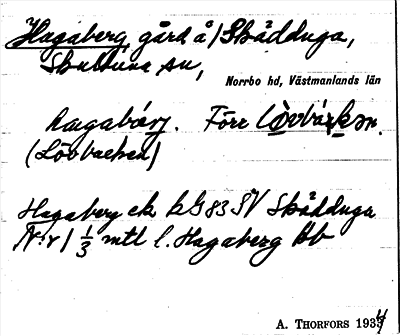 Hagaberg, gård å / Skädduga,
Skultuna sn,
Norrbo hd, Västmanlands län
hagabärj. Förr Lövbärkən.
(Lövbacken)
Hagaberg ek kG 83 SV Skädduga
N:r 1 1/3 mtl l. Hagaberg Bb
A. THORFORS 1934